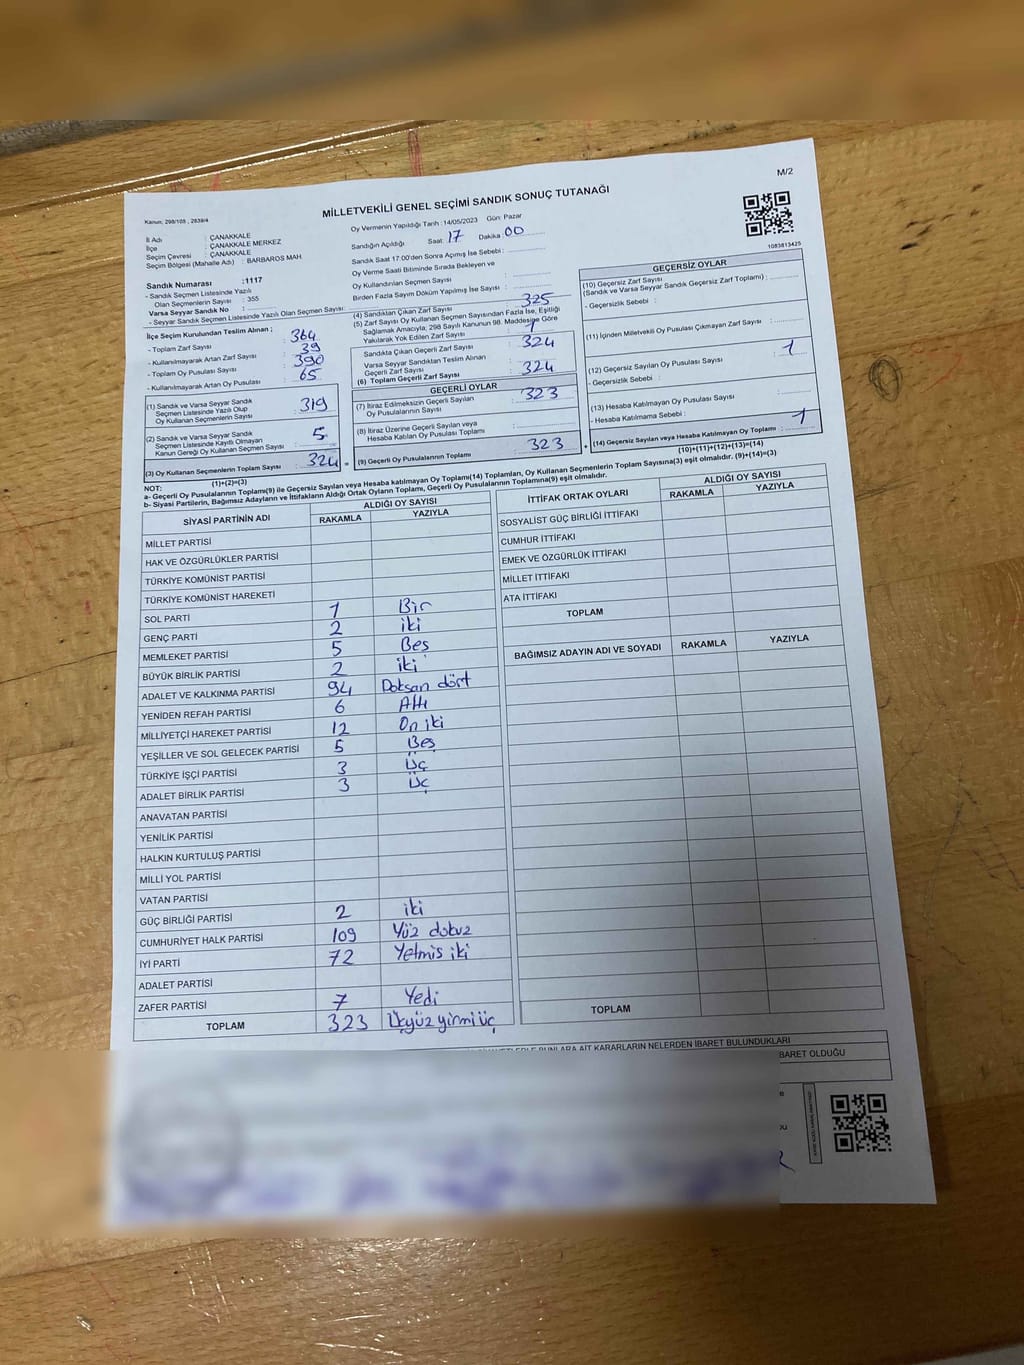 M/2
Kanun, 298/105 , 2839/4
MİLLETVEKİLİ GENEL SEÇİMİ SANDIK SONUÇ TUTANAĞI
İl Adı : ÇANAKKALE
İlçe : ÇANAKKALE MERKEZ
Seçim Çevresi : ÇANAKKALE
Seçim Bölgesi (Mahalle Adı) : BARBAROS MAH
Sandık Numarası :1117
- Sandık Seçmen Listesinde Yazılı
Olan Seçmenlerin Sayısı : 355
Varsa Seyyar Sandık No :
- Seyyar Sandık Seçmen Listesinde Yazılı Olan Seçmen Sayısı:
İlçe Seçim Kurulundan Teslim Alınan ;
- Toplam Zarf Sayısı : 364
- Kullanılmayarak Artan Zarf Sayısı : 39
- Toplam Oy Pusulası Sayısı : 390
- Kullanılmayarak Artan Oy Pusulası : 65
(1) Sandık ve Varsa Seyyar Sandık
Seçmen Listesinde Yazılı Olup
Oy Kullanan Seçmenlerin Sayısı : 319
(2) Sandık ve Varsa Seyyar Sandık
Seçmen Listesinde Kayıtlı Olmayan
Kanun Gereği Oy Kullanan Seçmen Sayısı : 5
(3) Oy Kullanan Seçmenlerin Toplam Sayısı : 324
(1)+(2)=(3)
Oy Vermenin Yapıldığı Tarih :14/05/2023 Gün: Pazar
Sandığın Açıldığı Saat: 17 Dakika: 00
Sandık Saat 17:00'den Sonra Açımış İse Sebebi :
Oy Verme Saati Bitiminde Sırada Bekleyen ve
Oy Kullandırılan Seçmen Sayısı :
Birden Fazla Sayım Döküm Yapılmış İse Sayısı :
(4) Sandıktan Çıkan Zarf Sayısı : 325
(5) Zarf Sayısı Oy Kullanan Seçmen Sayısından Fazla İse, Eşitliği
Sağlamak Amacıyla; 298 Sayılı Kanunun 98. Maddesine Göre
Yakılarak Yok Edilen Zarf Sayısı : 1
Sandıkta Çıkan Geçerli Zarf Sayısı : 324
Varsa Seyyar Sandıktan Teslim Alınan
Geçerli Zarf Sayısı :
(6) Toplam Geçerli Zarf Sayısı : 324
GEÇERLİ OYLAR
(7) İtiraz Edilmeksizin Geçerli Sayılan
Oy Pusulalarının Sayısı : 323
(8) İtiraz Üzerine Geçerli Sayılan veya
Hesaba Katılan Oy Pusulası Toplamı :
(9) Geçerli Oy Pusulalarının Toplamı : 323
1083813425
GEÇERSİZ OYLAR
(10) Geçersiz Zarf Sayısı
(Sandık ve Varsa Seyyar Sandık Geçersiz Zarf Toplamı) :
- Geçersizlik Sebebi :
(11) İçinden Milletvekili Oy Pusulası Çıkmayan Zarf Sayısı :
(12) Geçersiz Sayılan Oy Pusulası Sayısı : 1
- Geçersizlik Sebebi :
(13) Hesaba Katılmayan Oy Pusulası Sayısı :
- Hesaba Katılmama Sebebi :
(14) Geçersiz Sayılan veya Hesaba Katılmayan Oy Toplamı : 1
(10)+(11)+(12)+(13)=(14)
NOT:
a- Geçerli Oy Pusulalarının Toplamı(9) ile Geçersiz Sayılan veya Hesaba katılmayan Oy Toplamı(14) Toplamları, Oy Kullanan Seçmenlerin Toplam Sayısına(3) eşit olmalıdır. (9)+(14)=(3)
b- Siyasi Partilerin, Bağımsız Adayların ve İttifakların Aldığı Ortak Oyların Toplamı, Geçerli Oy Pusulalarının Toplamına(9) eşit olmalıdır.
SİYASİ PARTİNİN ADI ALDIĞI OY SAYISI
RAKAMLA YAZIYLA
MİLLET PARTİSİ
HAK VE ÖZGÜRLÜKLER PARTİSİ
TÜRKİYE KOMÜNİST PARTİSİ
TÜRKİYE KOMÜNİST HAREKETİ
SOL PARTİ 1 Bir
GENÇ PARTİ 2 iki
MEMLEKET PARTİSİ 5 Beş
BÜYÜK BİRLİK PARTİSİ 2 iki
ADALET VE KALKINMA PARTİSİ 94 Doksan dört
YENİDEN REFAH PARTİSİ 6 Altı
MİLLİYETÇİ HAREKET PARTİSİ 12 On iki
YEŞİLLER VE SOL GELECEK PARTİSİ 5 Beş
TÜRKİYE İŞÇİ PARTİSİ 3 Üç
ADALET BİRLİK PARTİSİ 3 Üç
ANAVATAN PARTİSİ
YENİLİK PARTİSİ
HALKIN KURTULUŞ PARTİSİ
MİLLİ YOL PARTİSİ
VATAN PARTİSİ
GÜÇ BİRLİĞİ PARTİSİ 2 iki
CUMHURİYET HALK PARTİSİ 109 Yüz dokuz
İYİ PARTİ 72 Yetmis iki
ADALET PARTİSİ
ZAFER PARTİSİ 7 Yedi
TOPLAM 323 Üçyüz yirmi üç
İTTİFAK ORTAK OYLARI ALDIĞI OY SAYISI
RAKAMLA YAZIYLA
SOSYALİST GÜÇ BİRLİĞİ İTTİFAKI
CUMHUR İTTİFAKI
EMEK VE ÖZGÜRLÜK İTTİFAKI
MİLLET İTTİFAKI
ATA İTTİFAKI
TOPLAM
BAĞIMSIZ ADAYIN ADI VE SOYADI RAKAMLA YAZIYLA
TOPLAM
AİT KARARLARIN NELERDEN İBARET BULUNDUKLARI
BARET OLDUĞU